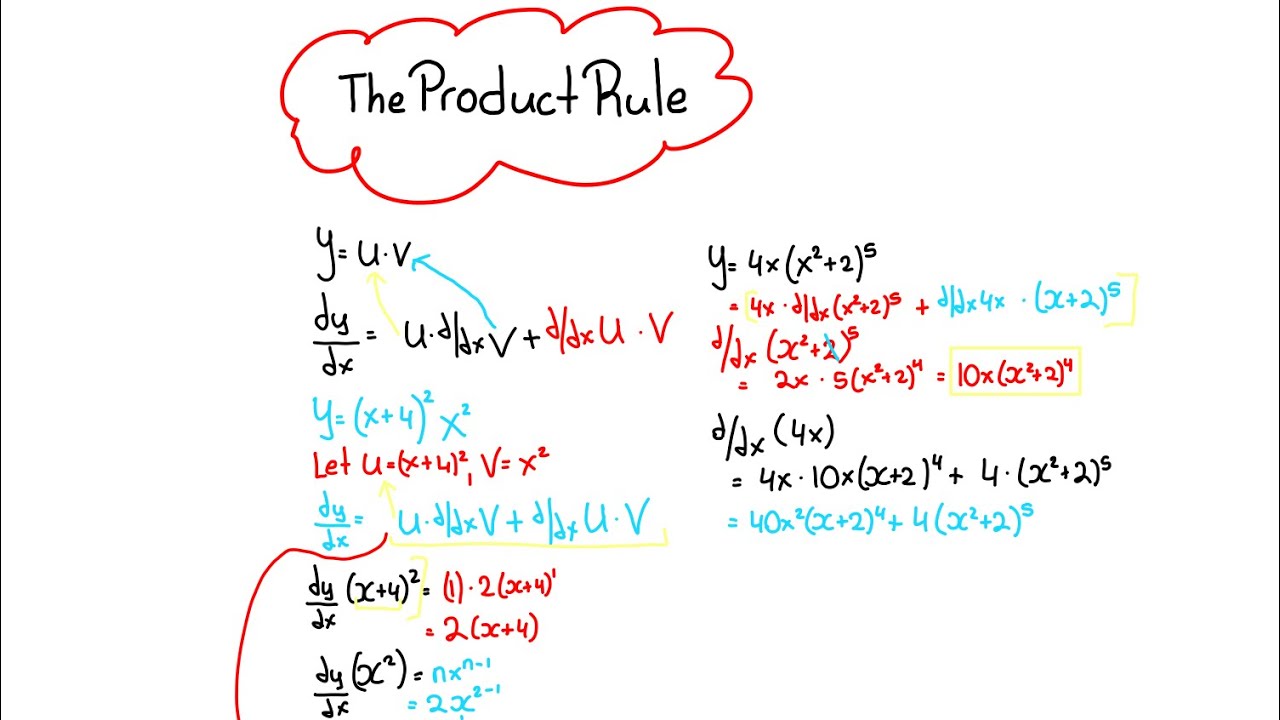 The Product Rule
y= u·v
dy/dx = u·d/dx v + d/dx u · v
y=(x+4)² x²
Let u=(x+4)², v= x²
dy/dx = u·d/dx v + d/dx u · v
dy/dx (x+4)² = (1)·2(x+4)¹
= 2(x+4)
dy/dx (x²) = nxⁿ⁻¹
= 2x²⁻¹
y= 4x(x²+2)⁵
= 4x·d/dx(x²+2)⁵ + d/dx 4x · (x+2)⁵
d/dx (x²+2)⁵
= 2x · 5(x²+2)⁴ = 10x(x²+2)⁴
d/dx (4x)
= 4x·10x(x+2)⁴ + 4·(x²+2)⁵
= 40x²(x+2)⁴ + 4(x²+2)⁵